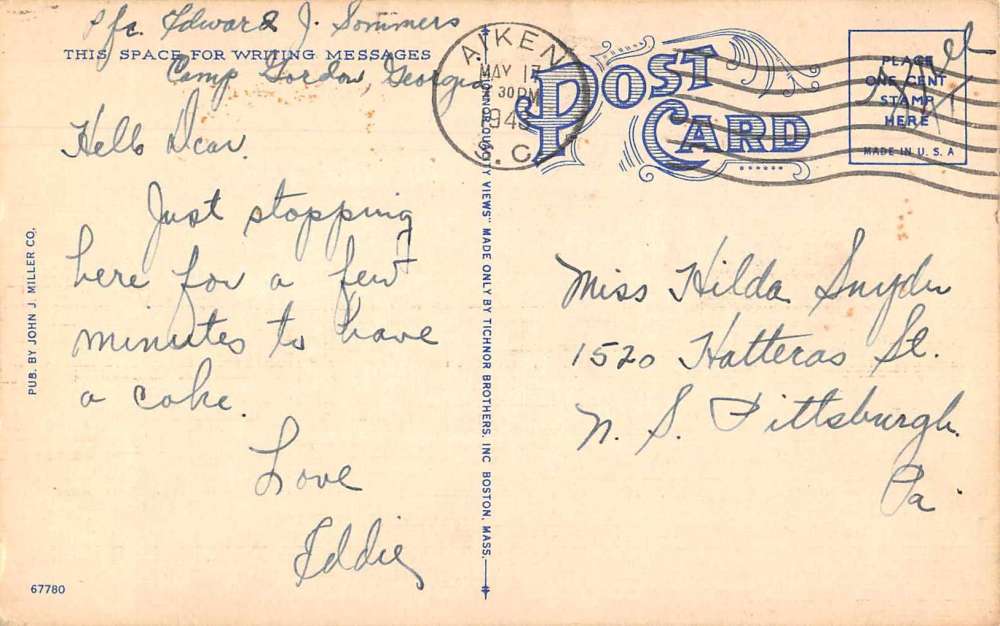 Pfc. Edward J. Sommers
THIS SPACE FOR WRITING MESSAGES
Camp Gordon, Georgia
Hello Dear.
Just stopping
here for a few
minutes to have
a coke.
Love
Eddie
PUB. BY JOHN J. MILLER CO.
67780
QUALITY VIEWS" MADE ONLY BY TICHNOR BROTHERS, INC. BOSTON, MASS.
AIKEN
MAY 17
30 PM
194
S. C.
POST
CARD
PLACE
ONE CENT
STAMP
HERE
MADE IN U. S. A
Miss Hilda Snyder
1520 Hatteras St.
N. S. Pittsburgh.
Pa.